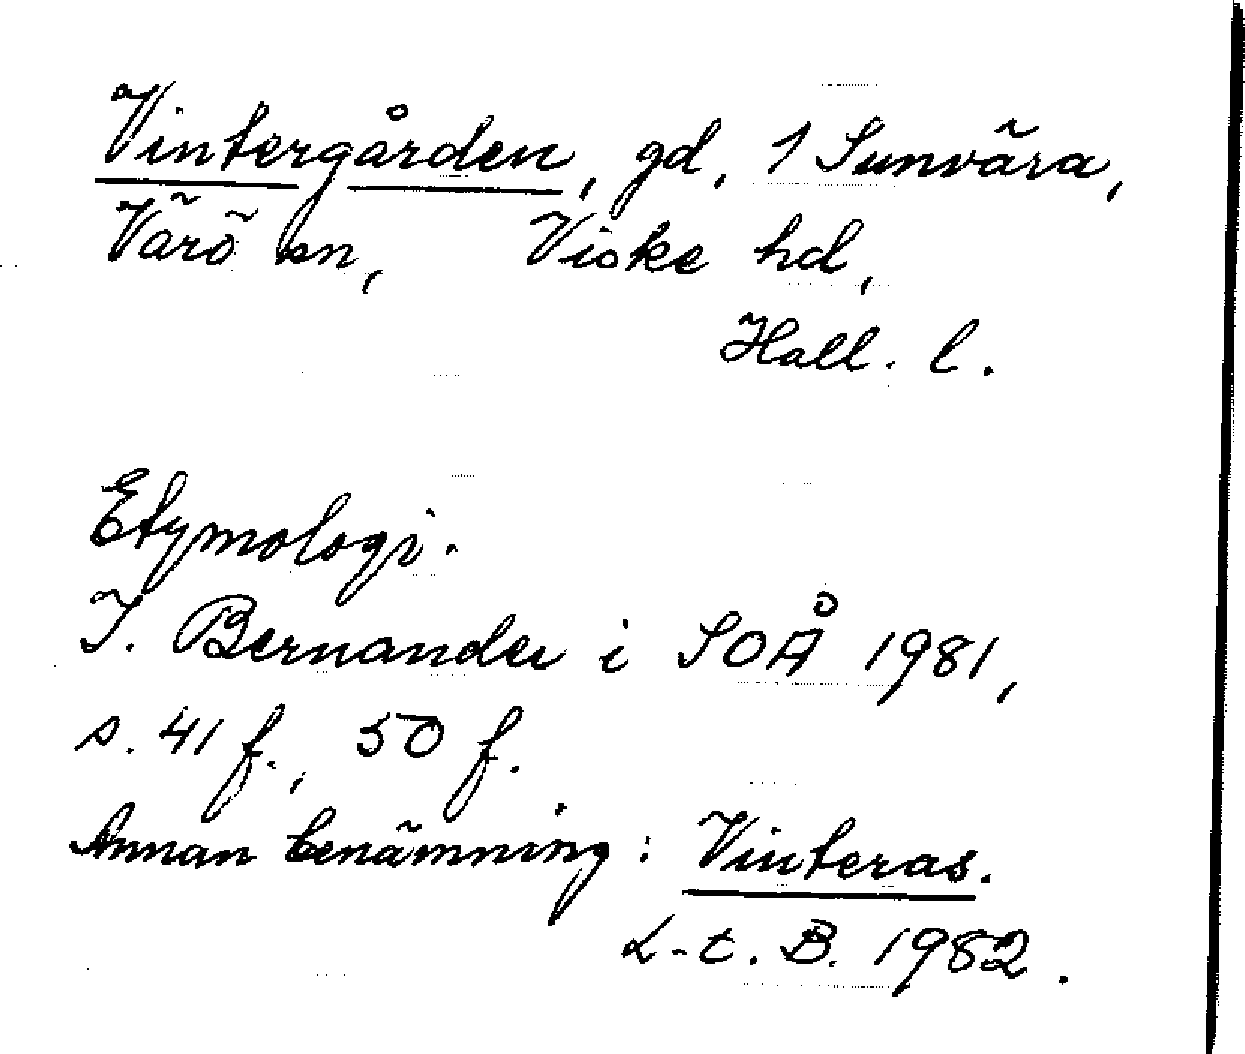 Vintergården, gd, 1 Sunvära,
Värö sn, Viske hd,
Hall. l.
Etymologi.
I. Bernander i SOÅ 1981,
s. 41 f., 50 f.
Annan benämning: Vinteras.
L-t. B. 1982.